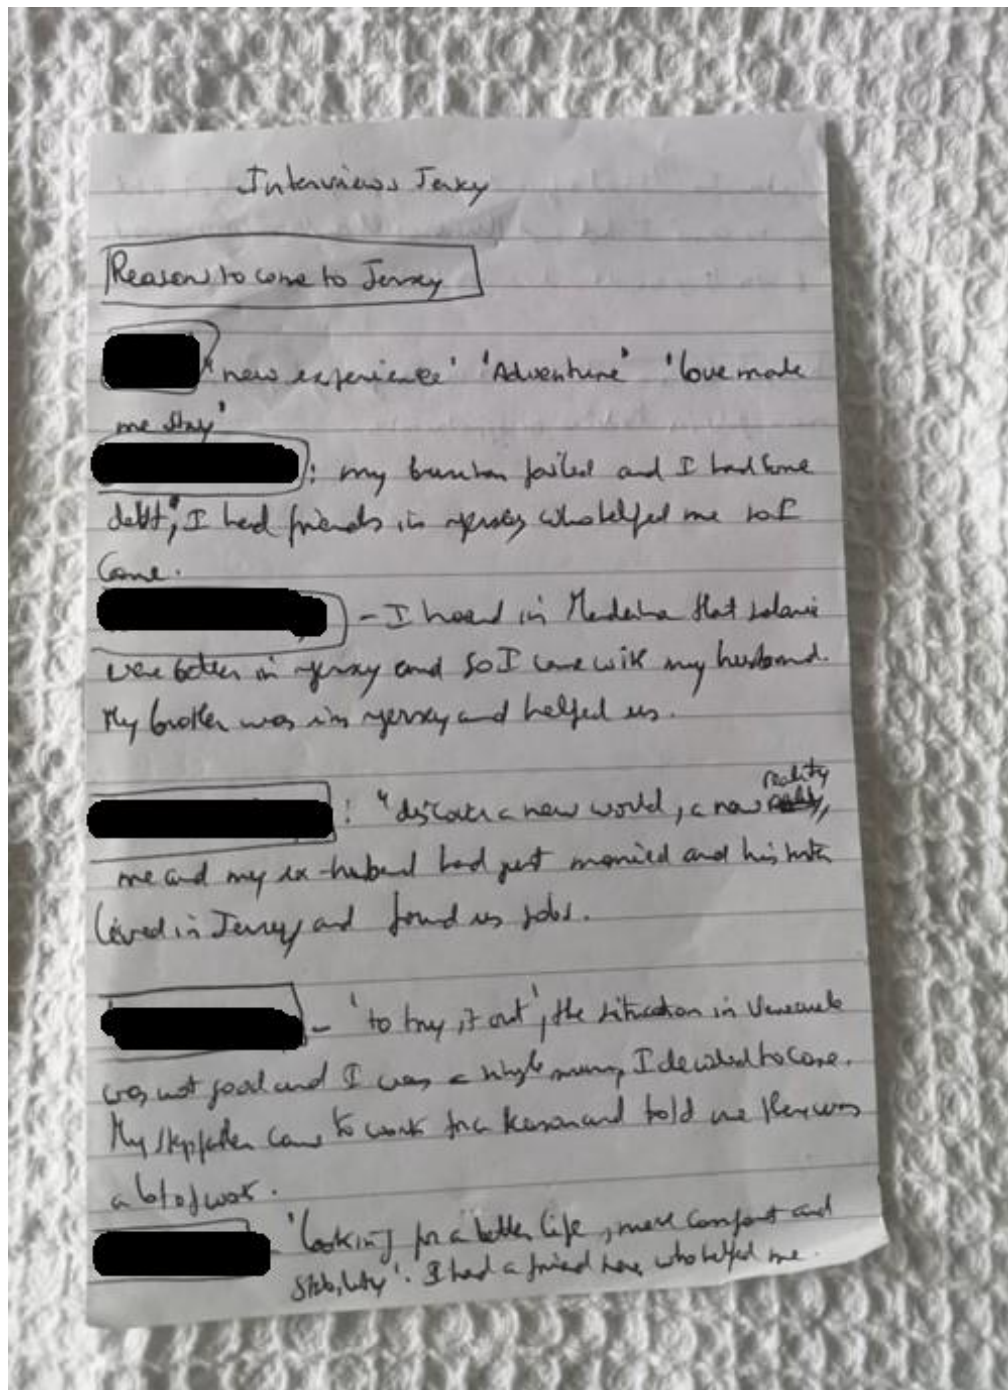 Interviews Jersey
Reason to come to Jersey
'new experience' 'Adventure' 'love made
me stay'
: my business failed and I had some
debt", I had friends in yersey who helped me so I
came.
- I heard in Madeira that salarie
were better in yersey and so I came with my husband.
My brother was in yersey and helped us.
: "discover a new world, a new reality,
me and my ex-husband had just married and his
lived in Jersey and found us jobs.
- 'to try it out', the situation in Venezuela
was not good and I was a single mum, I decided to come.
My stepfather came to work for a season and told me there was
a lot of work.
'looking for a better life, more comfort and
stability'. I had a friend here who helped me.